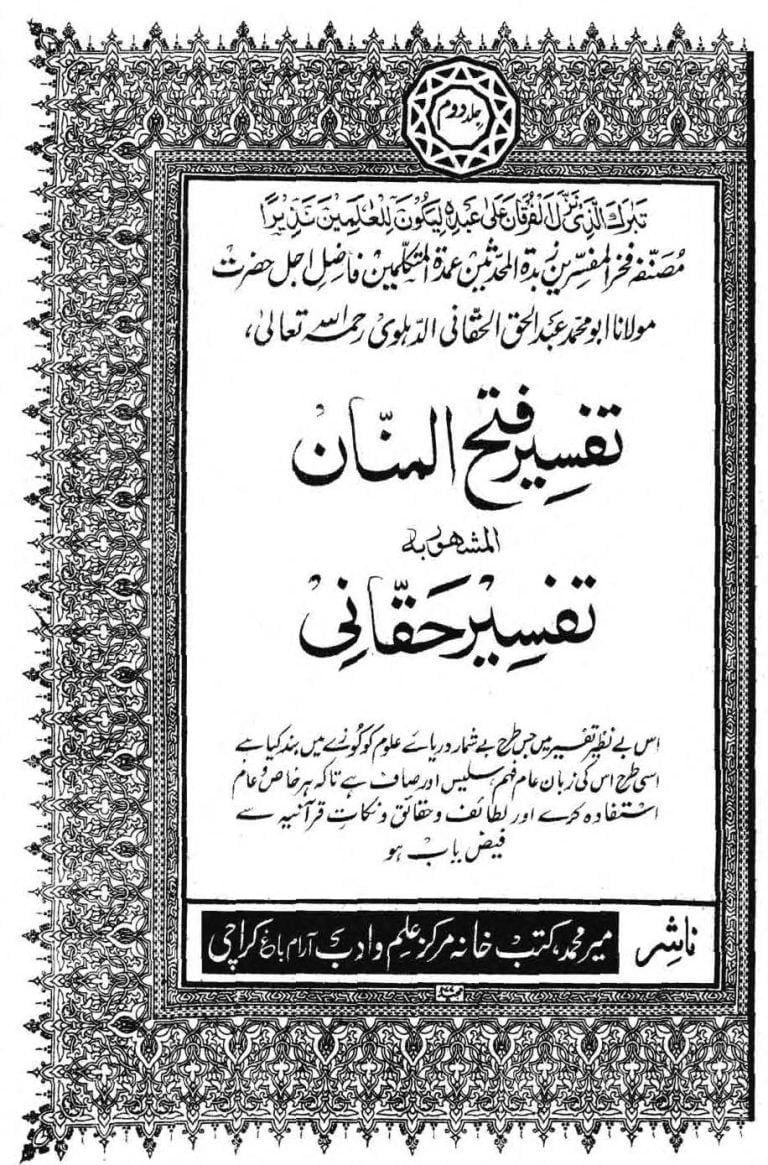 جلد دوم
تَبٰرَكَ الَّذِیْ نَزَّلَ الْفُرْقَانَ عَلٰی عَبْدِهٖ لِيَكُوْنَ لِلْعٰلَمِيْنَ نَذِيْرًا
مُصنّفہ فخر المفسرین زبدۃ المحدثین عمدۃ المتکلمین فاضل اجل حضرت
مولانا ابو محمد عبد الحق الحقانی الدہلوی رحمہ اللہ تعالیٰ،
تفسیر فتح المنّان
المشہور بہ
تفسیر حقّانی
اس بے نظیر تفسیر میں جس طرح بے شمار دریائے علوم کو کوزے میں بند کیا ہے
اسی طرح اس کی زبان عام فہم، سلیس اور صاف ہے تاکہ ہر خاص و عام
استفادہ کرے اور لطائف و حقائق و نکات قرآنیہ سے
فیض یاب ہو
ناشر
میر محمد، کتب خانہ مرکز علم و ادب آرام باغ کراچی